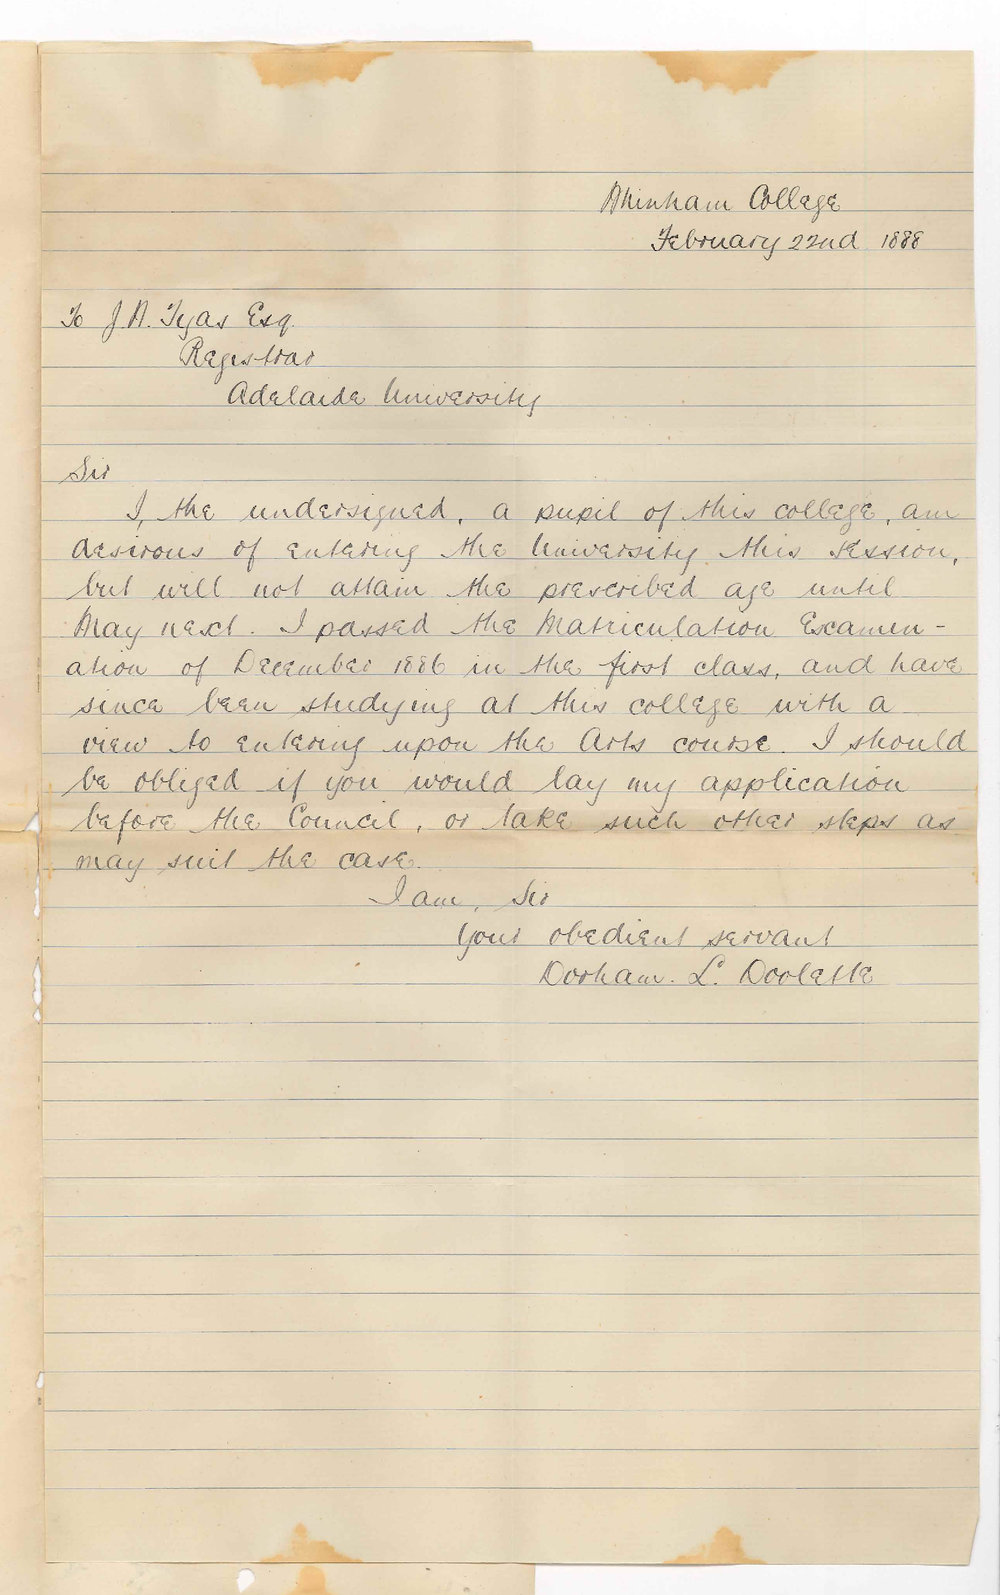 Whinham College
February 22nd 1888
To J.W. Tyas Esq.
Registrar
Adelaide University
Sir
I, the undersigned, a pupil of this college, am
desirous of entering the University this session,
but will not attain the prescribed age until
May next. I passed the Matriculation Examin-
ation of December 1886 in the first class, and have
since been studying at this college with a
view to entering upon the Arts course. I should
be obliged if you would lay my application
before the Council, or take such other steps as
may suit the case.
I am, Sir
Your obedient servant
Dorham. L. Doolette